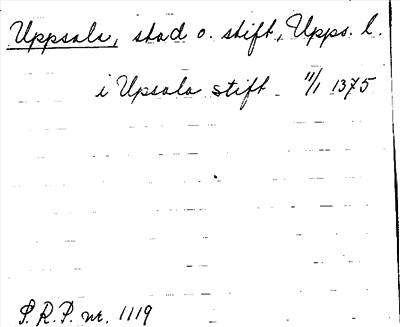 Uppsala, stad o. stift, Upps. l.
i Upsala stift 11/1 1375
S.R.P. nr. 1119